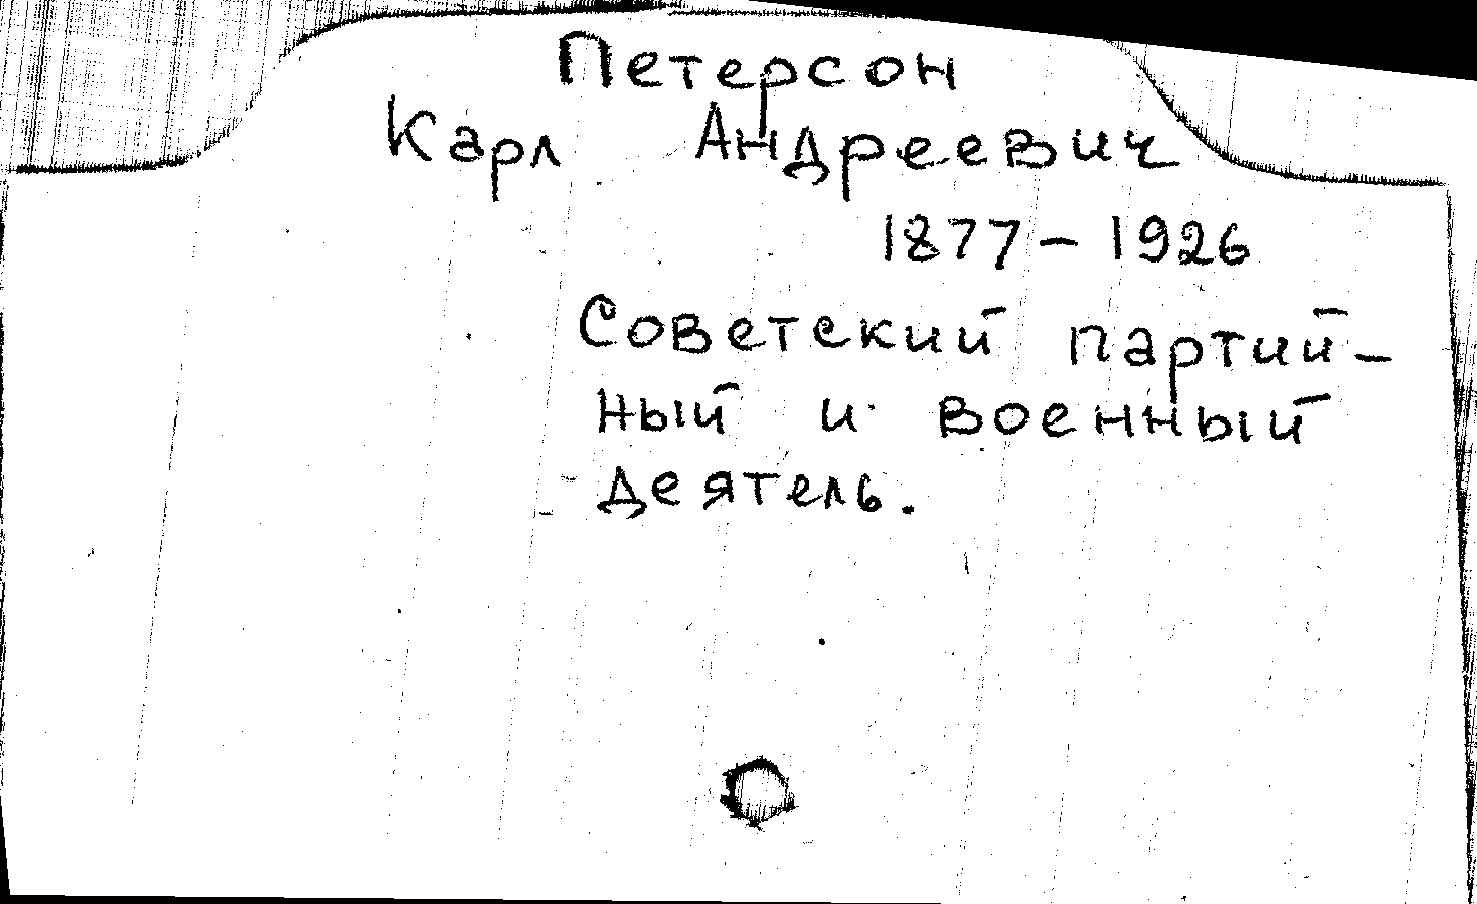 Петерсон
Карл Андреевич
1877-1926
Советский партий-
ный и военный
деятель.